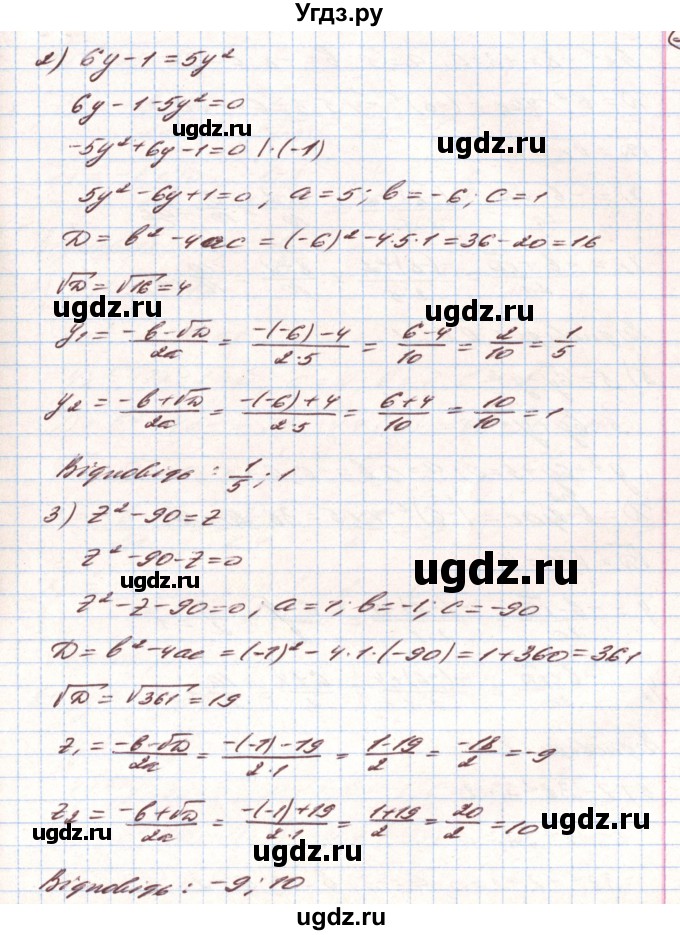 Угдз.ру
2) 6y - 1 = 5y²
6y - 1 - 5y² = 0
ugdz.ru ugdz.ru
-5y² + 6y - 1 = 0 | · (-1)
5y² - 6y + 1 = 0 ; a = 5 ; b = -6 ; c = 1
D = b² - 4ac = (-6)² - 4·5·1 = 36 - 20 = 16
√D = √16 = 4
ugdz.ru ugdz.ru
y₁ = (-b-√D)/2a = (-(-6)-4)/(2·5) = (6-4)/10 = 2/10 = 1/5
y₂ = (-b+√D)/2a = (-(-6)+4)/(2·5) = (6+4)/10 = 10/10 = 1
ugdz.ru
Відповідь : 1/5 ; 1
3) z² - 90 = z
z² - 90 - z = 0
ugdz.ru ugdz.ru
z² - z - 90 = 0 ; a = 1 ; b = -1 ; c = -90
D = b² - 4ac = (-1)² - 4·1·(-90) = 1 + 360 = 361
√D = √361 = 19
ugdz.ru
z₁ = (-b-√D)/2a = (-(-1)-19)/(2·1) = (1-19)/2 = -18/2 = -9
z₂ = (-b+√D)/2a = (-(-1)+19)/(2·1) = (1+19)/2 = 20/2 = 10
ugdz.ru ugdz.ru
ugdz.ru
Відповідь : -9 ; 10
ugdz.ru